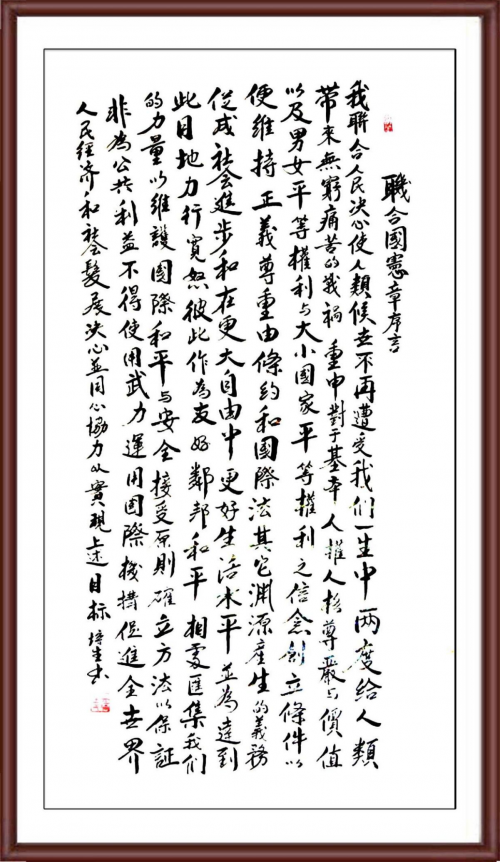 聯合國憲章序言
我聯合人民决心使人類候世不再遭受我们一生中两度给人類
带來無窮痛苦的戰禍重申對于基本人權人格尊嚴与價值
以及男女平等權利与大小國家平等權利之信念創立條件以
便維持正義尊重由條约和國際法其它渊源産生的義務
促成社會進步和在更大自由中更好生活水平並為達到
此目地力行寬恕彼此作為友好鄰邦和平相處匯集我们
的力量以維護國際和平与安全接受原則確立方法以保証
非為公共利益不得使用武力運用國際機構促進全世界
人民經济和社會發展决心並同心協力以實現上述目标培生书